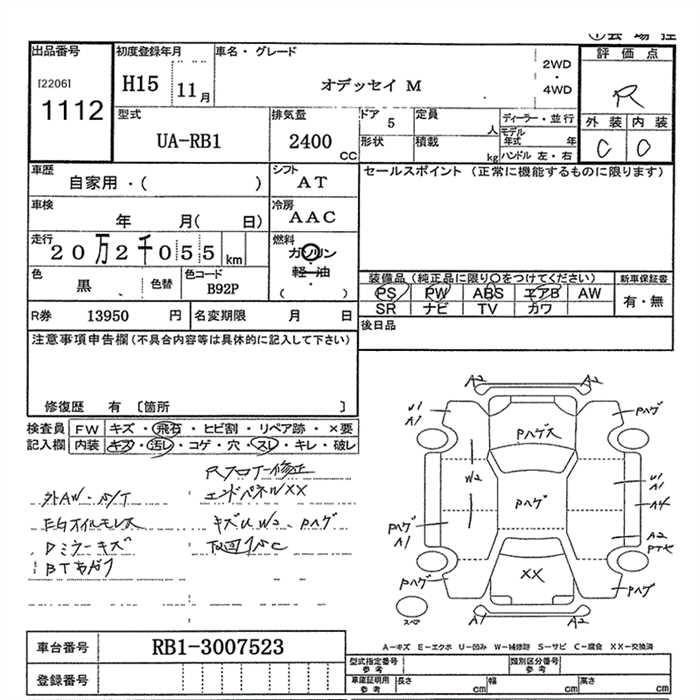 出品番号
[2206]
1112
初度登録年月
H15 11月
車名・グレード
オデッセイ M
2WD
・
4WD
評価点
R
外装 内装
C C
型式
UA-RB1
排気量
2400 cc
ドア 5
定員 人
形状
積載 kg
ディーラー・並行
モデル年式 年
ハンドル 左・右
車歴
自家用・( )
シフト
AT
セールスポイント (正常に機能するものに限ります)
車検
年 月( 日)
冷房
AAC
走行
20万2千055 km
燃料
ガソリン
・
軽油
( )
色
黒
色替
色コード
B92P
装備品 (純正品に限り○をつけてください)
新車保証書
PS PW ABS エアB AW
有・無
SR ナビ TV カワ
R券 13950 円
名変期限 月 日
後日品
注意事項申告欄(不具合内容等は具体的に記入して下さい)
修復歴 有 〔箇所 〕
検査員記入欄
FW キズ・飛石・ヒビ割・リペア跡・×要
内装 キズ・汚レ・コゲ・穴・スレ・キレ・破レ
Rフロアー修正
社外AW・S/T
エンドパネルXX
EGオイルモレ大
キズU W2、Pハゲ
Dミラーキズ
A2
A2
U1
A1
Pハゲ
Pハゲ大
W2
U1
A1
Pハゲ
A4
Pハゲ
A1
A2
Pハゲ
XX
Pハゲ
スペア
A1
A2
車台番号 RB1-3007523
登録番号
A-キズ E-エクボ U-凹み W-補修跡 S-サビ C-腐食 XX-交換済
型式指定番号
参考
類別区分番号
参考
車庫証明用
参考
長さ cm
幅 cm
高さ cm